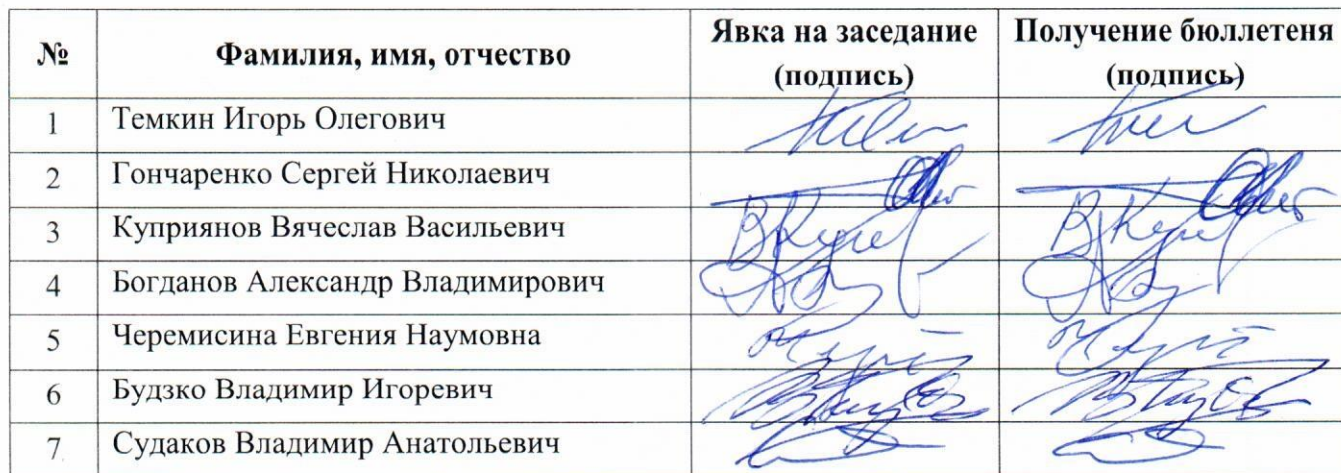 № Фамилия, имя, отчество Явка на заседание (подпись) Получение бюллетеня (подпись)
1 Темкин Игорь Олегович
2 Гончаренко Сергей Николаевич
3 Куприянов Вячеслав Васильевич
4 Богданов Александр Владимирович
5 Черемисина Евгения Наумовна
6 Будзко Владимир Игоревич
7 Судаков Владимир Анатольевич